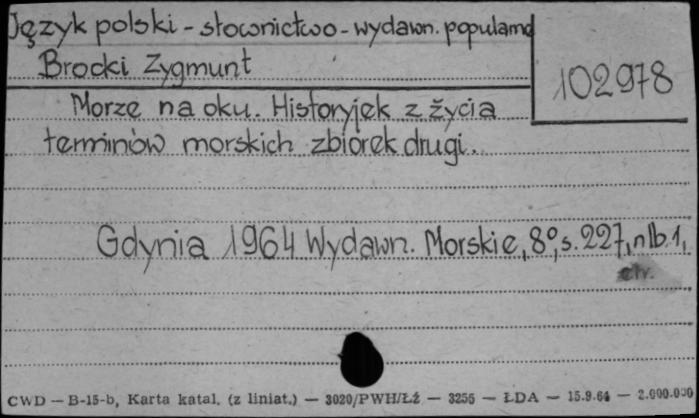 Język polski - słownictwo - wydawn. popularne
Brocki Zygmunt
102978
Morze na oku. Historyjek z życia
terminów morskich zbiorek drugi.
Gdynia 1964 Wydawn. Morskie, 8°, s. 227, nlb. 1,
CWD — B-15-b, Karta katal. (z liniat.) — 3020/PWH/ŁŹ — 3256 — ŁDA — 15.9.64 — 2.000.000